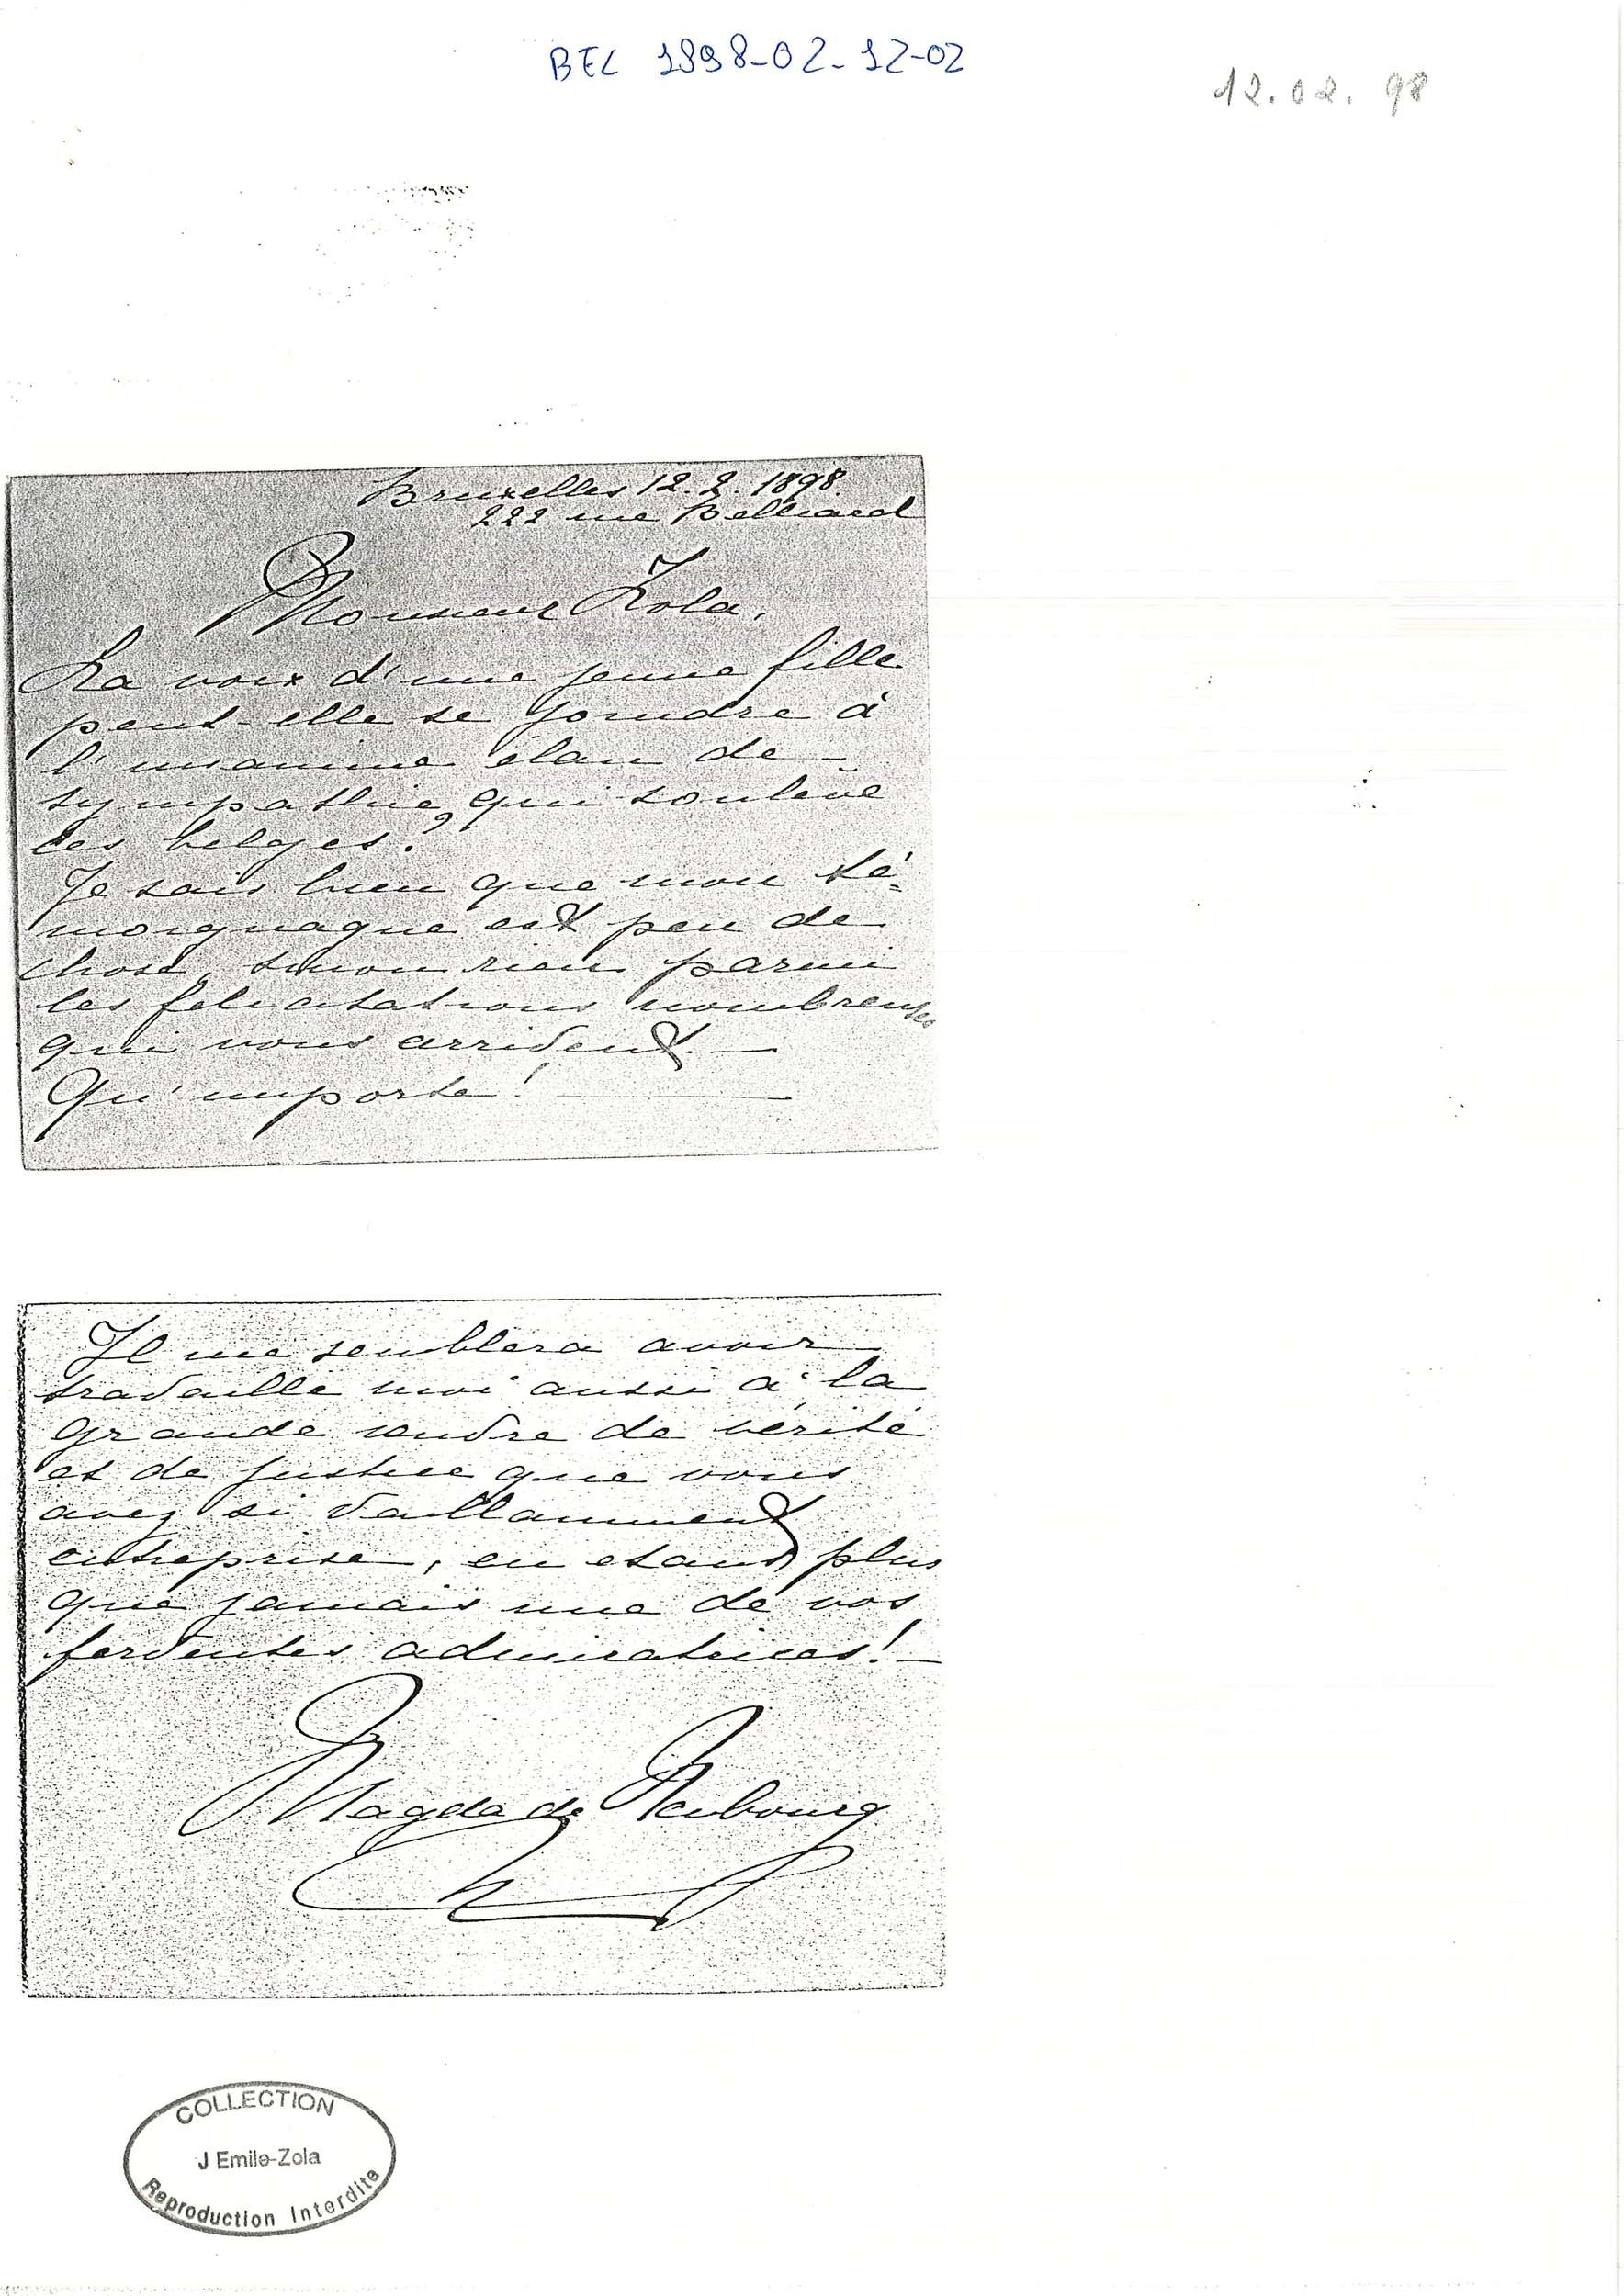 BEL 1898-02-12-02
12.02.98
Bruxelles 12.2.1898.
222 rue Belliard
Monsieur Zola,
La voix d'une jeune fille
peut-elle se joindre à
l'unanime élan de
sympathie qui soulève
les belges?
Je sais bien que mon té=
moignage est peu de
chose, sinon rien parmi
les félicitations nombreuses
qui vous arrivent. —
Qu'importe! —
Il me semblera avoir
travaillé moi aussi à la
grande œuvre de vérité
et de justice que vous
avez si vaillamment
entreprise, en étant plus
que jamais une de vos
ferventes admiratrices! —
Magda de
COLLECTION
J Emile-Zola
Reproduction Interdite